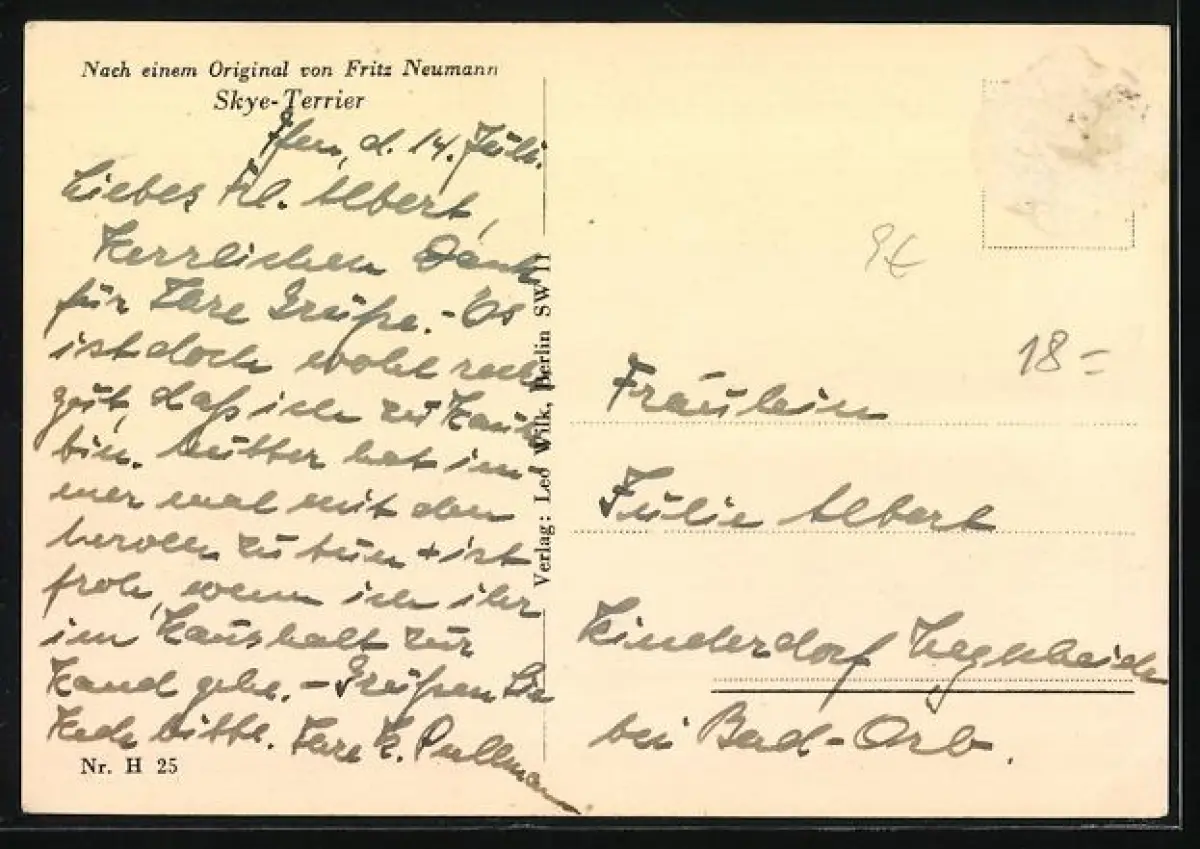 Nach einem Original von Fritz Neumann
Skye-Terrier
d. 14. Juli.
Liebes Frl. Albert,
Herzlichen Dank
für Ihre Grüße. - Es
ist doch wohl recht
gut, daß ich zu Hause
bin. Mutter hat im-
mer mal mit den
Nerven zu tun + ist
froh, wenn ich ihr
im Haushalt zur
Hand gehe. - Grüßen Sie
bitte. Ihre K. Pullmann
Nr. H 25
Verlag: Leo Wilk, Berlin SW 11
9€
18=
Fräulein
Julie Albert
Kinderdorf Wegscheide
bei Bad-Orb.